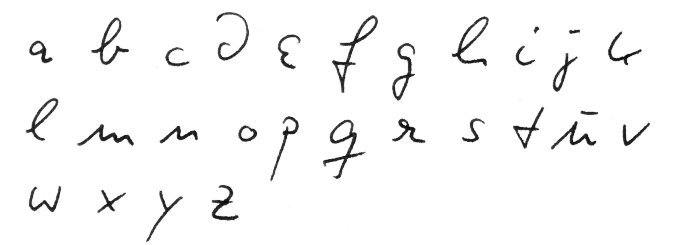 a b c d ε f g h i j k
l m n o p q r s t ū v
w x y z